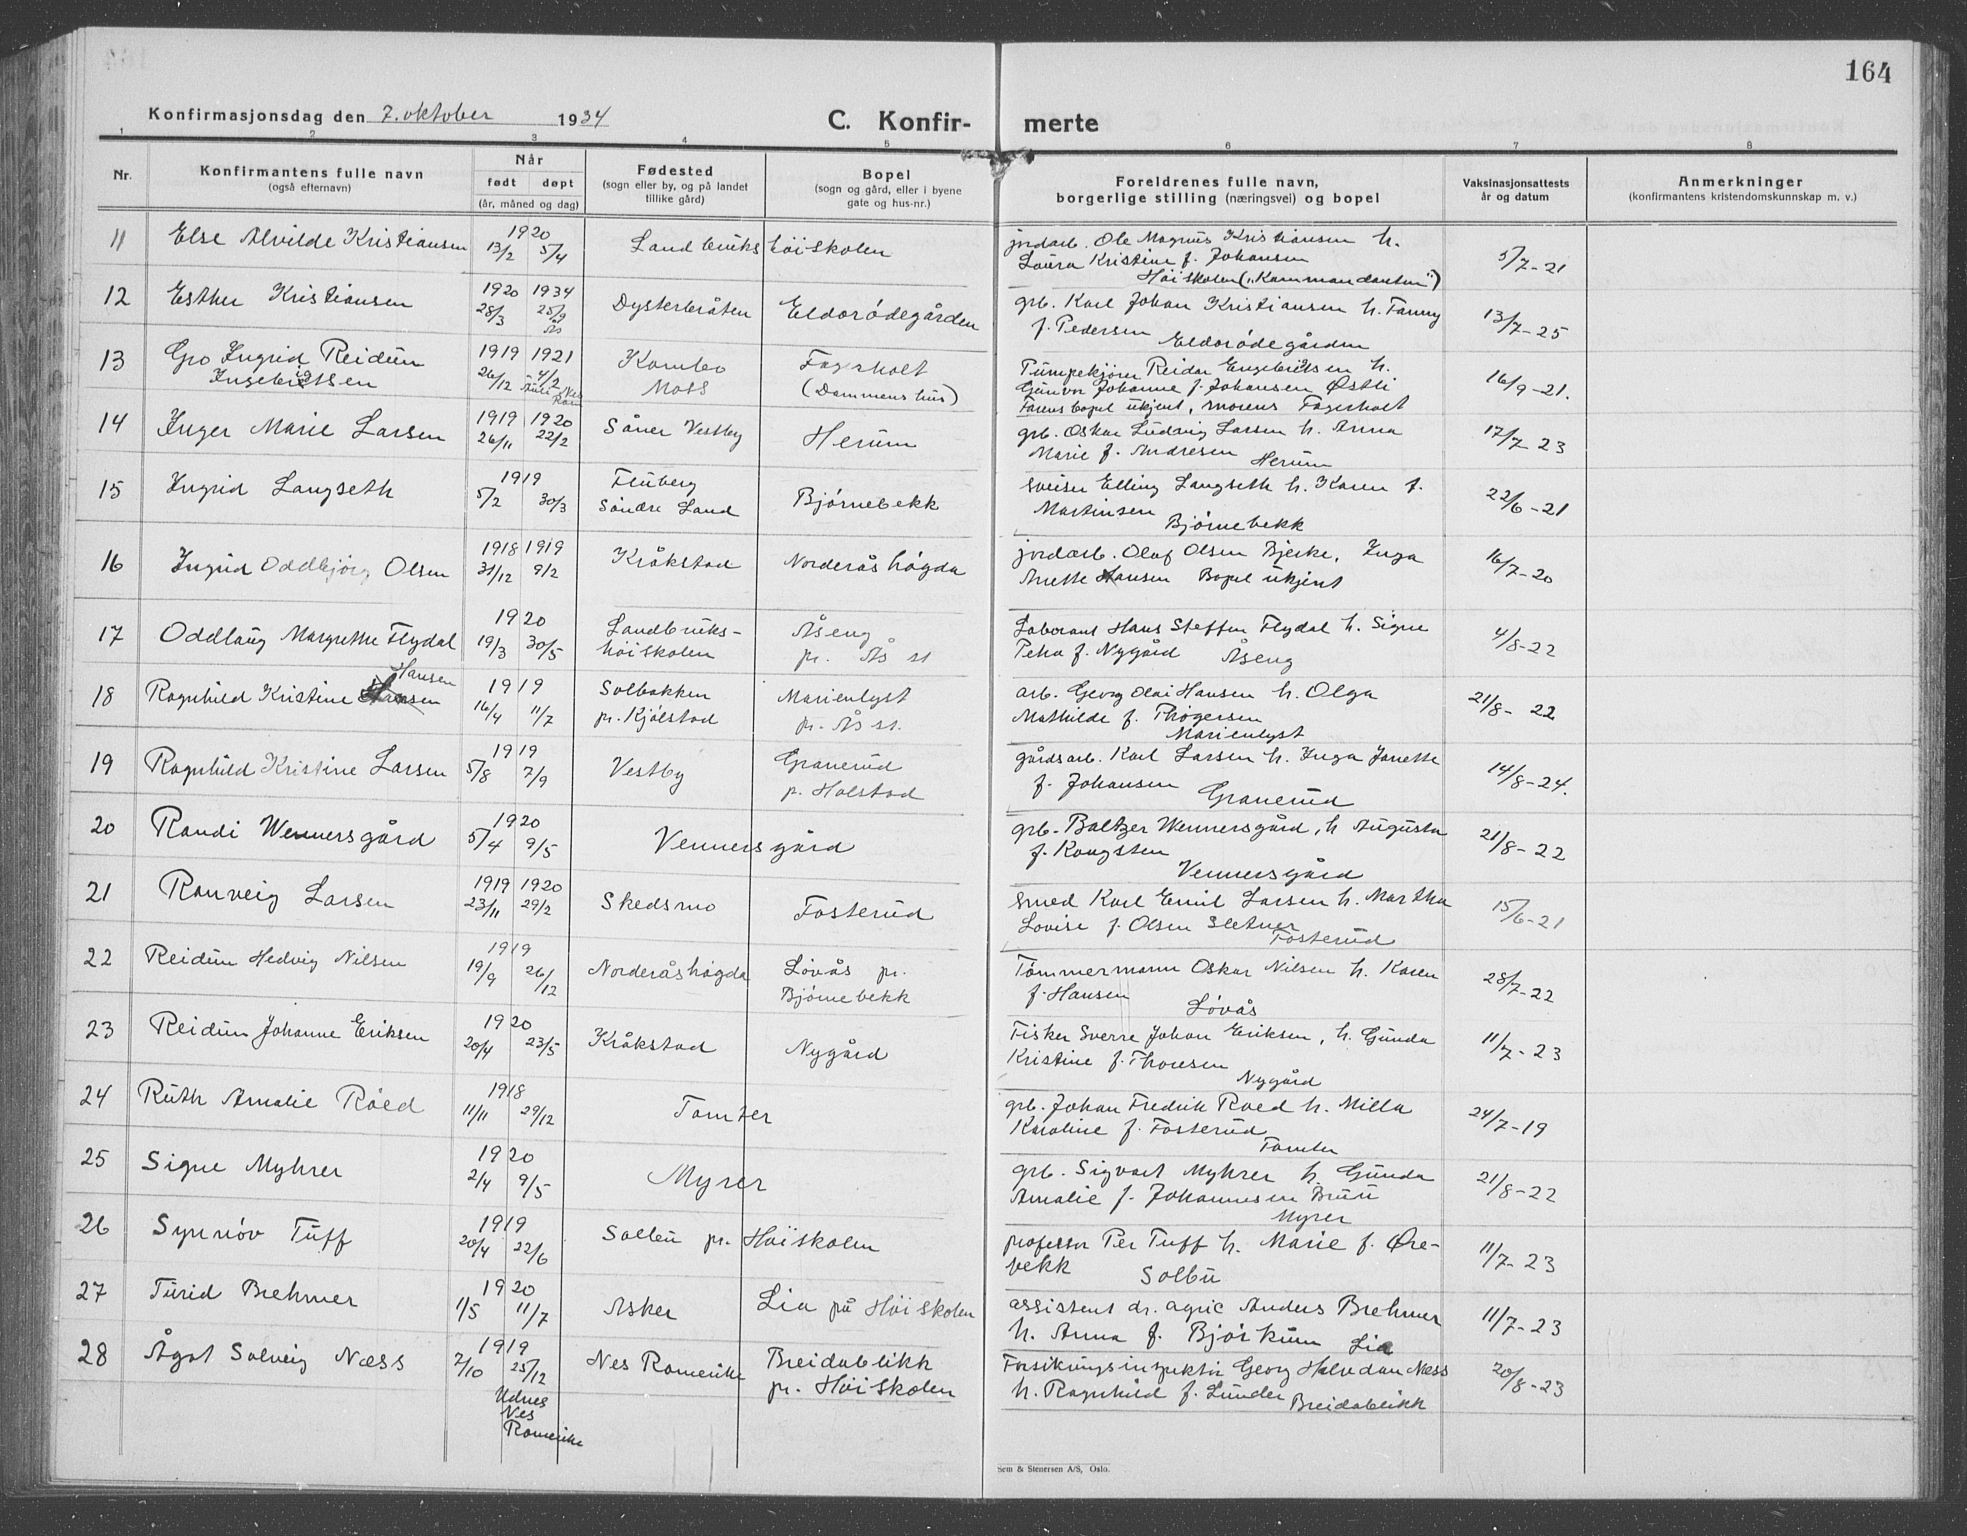 164
Konfirmasjonsdag den 7. oktober 1934
C. Konfir- merte
1 2 3 4 5 6 7 8
Nr.
Konfirmantens fulle navn
(også efternavn)
Når
født døpt
(år, måned og dag)
Fødested
(sogn eller by, og på landet
tillike gård)
Bopel
(sogn og gård, eller i byene
gate og hus-nr.)
Foreldrenes fulle navn,
borgerlige stilling (næringsvei) og bopel
Vaksinasjonsattests
år og datum
Anmerkninger
(konfirmantens kristendomskunnskap m. v.)
11 Else Alvilde Kristiansen 1920 13/2 5/4 Landbrukshöiskolen
jordarb. Ole Magnus Kristiansen h.
Laura Kristine f. Johansen
Höiskolen ("Kommandanten") 5/7-21
12 Esther Kristiansen 1920 28/3 1934 25/9 Ås Dysterbråten Eldorødegården
grb. Karl Johan Kristiansen h. Fanny
f. Pedersen Eldorødegården 13/7-25
13 Gro Ingrid Reidun
Ingebrigtsen 1919 26/12 1921 4/2 Nes Rom Kambo
Moss Fagerholt
(Dammenshus)
Pumpekjører Reidar Engebretsen h.
Gunvor Johanne f. Johansen Østli
Farens bopel ukjent, morens Fagerholt 16/9-21.
14 Inger Marie Larsen 1919 26/11 1920 22/2 Såner Vestby Herum
grb. Oskar Ludvig Larsen h. Anna
Marie f. Andresen Herum 17/7-23
15 Ingrid Langseth 1919 5/2 30/3 Fluberg
Söndre Land Bjørnebekk
sveiser Elling Langseth h. Karen f.
Martinsen
Bjørnebekk 22/6-21
16 Ingrid Oddbjörg Olsen 1918 31/12 1919 9/2 Kråkstad Norderåshögda
jordarb. Olaf Olsen Bjerke, Inga
Anette Hansen Bopel ukjent 16/7-20
17 Oddlaug Margrethe Flydal 1920 19/3 30/5 Landbruks-
höiskolen Åseng
pr. Ås st
Laborant Hans Steffen Flydal h. Signe
Petra f. Nygård Åseng 4/8-22
18 Ragnhild Kristine Hansen 1919 16/4 11/7 Solbakken
pr. Kjölstad Marienlyst
pr. Ås st.
arb. Georg Olai Hansen h. Olga
Mathilde f. Thögersen
Marienlyst 21/8-22
19 Ragnhild Kristine Larsen 1919 5/8 7/9 Vestby Granerud
p. Holstad
gårdsarb. Karl Larsen h. Inga Janette
f. Johansen Granerud 14/8-24.
20 Randi Wennersgård 1920 5/4 9/5 Vennersgård
grb. Baltzer Wennersgård, h Augusta
f. Kongsten
Vennersgård 21/8-22
21 Ranveig Larsen 1919 23/11 1920 29/2 Skedsmo Fosterud
smed Karl Emil Larsen h. Martha
Lovise f. Olsen Sletner
Fosterud 15/6-21
22 Reidun Hedvig Nilsen 1919 19/9 26/12 Norderåshögda Løvås pr.
Bjørnebekk
Tömmermann Oskar Nilsen h. Karen
f. Hansen Løvås 28/7-22
23 Reidun Johanne Eriksen 1920 20/4 23/5 Kråkstad Nygård
Fisker Sverre Johan Eriksen, h. Gunda
Kristine f. Thoresen
Nygård 11/7-23
24 Ruth Amalie Röed 1918 11/11 29/12 Tomter
grb. Johan Fredrik Roed h. Milla
Karoline f. Fosterud
Tomter 24/7-19
25 Signe Myhrer 1920 2/4 9/5 Myrer
grb. Sigvart Myhrer h. Gunda
Amalie f. Johannesen Bruu
Myrer 21/8-22
26 Synnöv Tuff 1919 20/4 22/6 Solbu pr. Höiskolen
professor Per Tuff h. Marie f. Øre-
bekk Solbu 11/7-23
27 Turid Brehmer 1920 1/5 11/7 Asker Lia på Höiskolen
assistent dr. agric Anders Brehmer
h. Anna f. Björkum Lia 11/7-23
28 Ågot Solveig Næss 1919 7/10 25/12 Udnes
Nes
Romerike Nes Romerike Breidablikk
pr. Höiskolen
Forsikringsinspektör Georg Halvdan Næss
h. Ragnhild f. Lunder Breidablikk 20/8-23
Sem & Stenersen A/S, Oslo.